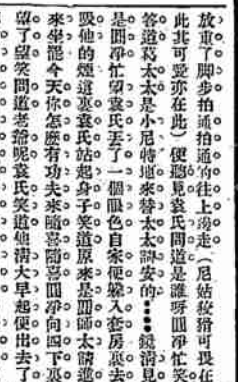 放重了脚步拍通拍通的往上邊走（尼姑狡猾可畏在
此其可愛亦在此）便聽見袁氏問道是誰呀圓淨忙笑
答道葛太太是小尼特地來替太太請安的●●●●鏡清見
是圓淨忙望袁氏丟了一個眼色自家便躲入套房裏去
吸他的煙這裏袁氏站起身子笑道原來是圓師太請進
來坐罷今天你怎麽有功夫來隨喜隨喜圓淨向四下裏
望了望笑問道老爺呢袁氏笑道他清大早起便出去了